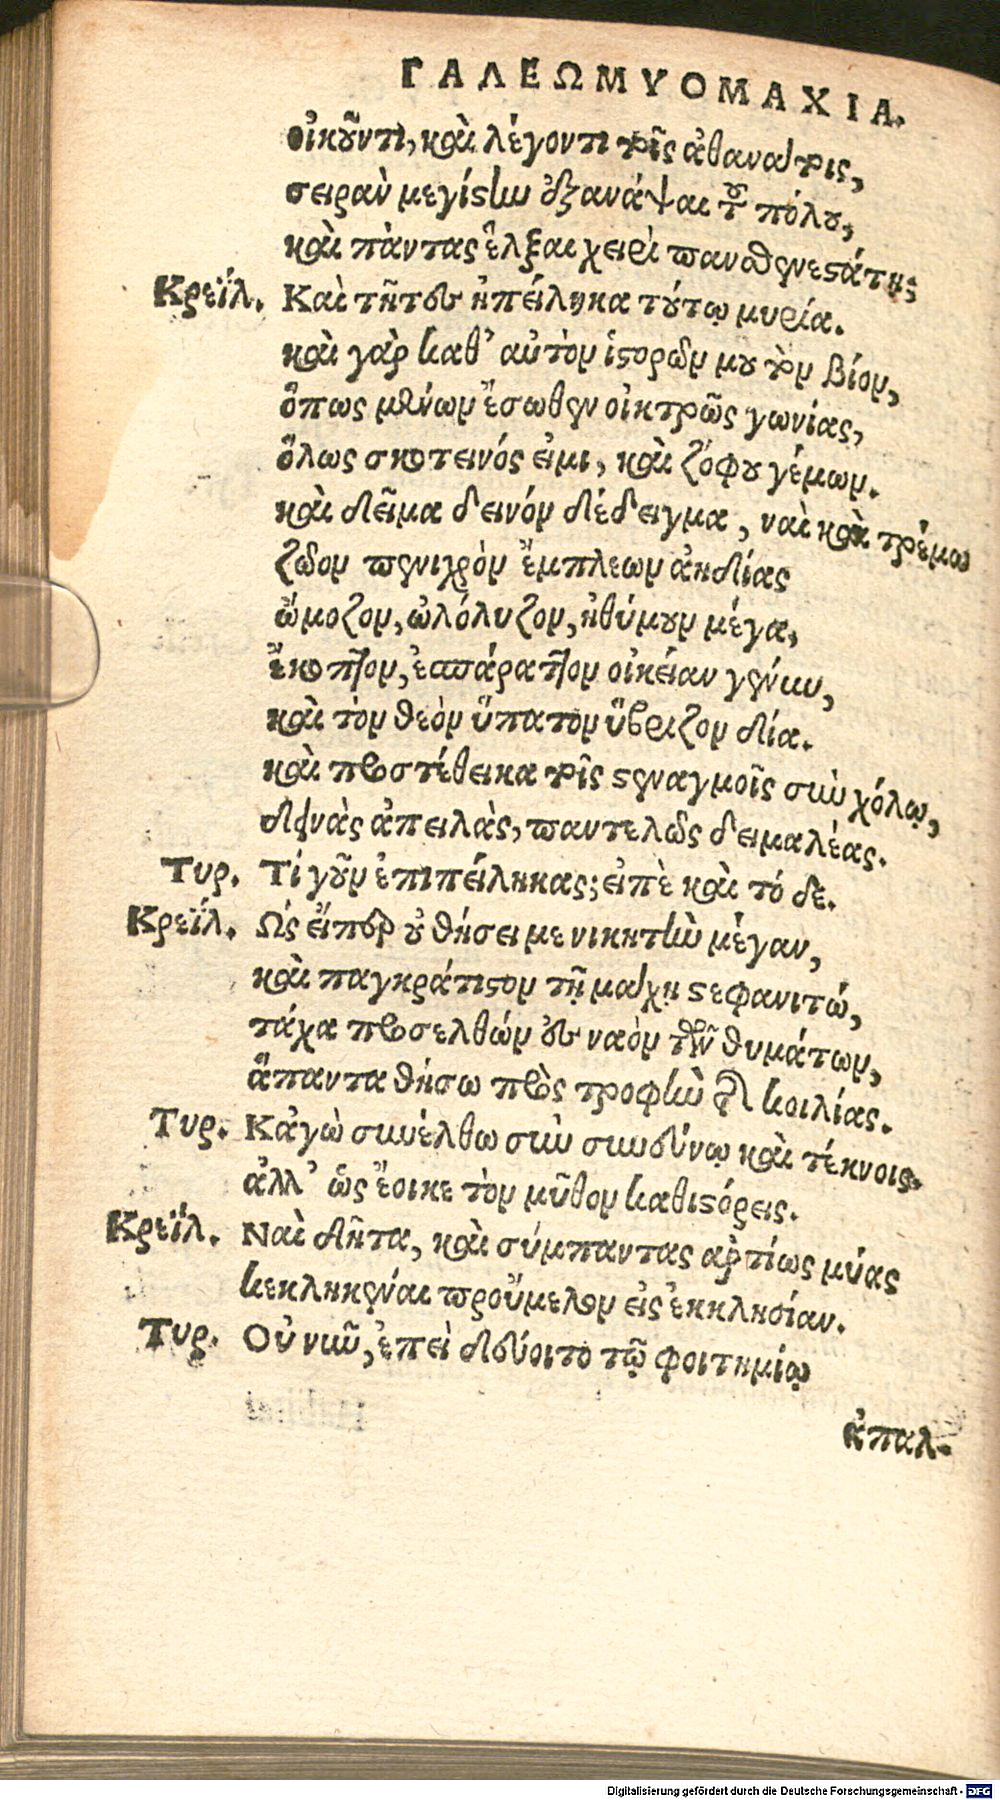 ΓΑΛΕΩΜΥΟΜΑΧΙΑ.
οἰκοῦντι, καὶ λέγοντι τοῖς ἀθανάτοις,
σειρὰν μεγίστην ἐξανάψαι τοῦ πόλου,
καὶ πάντας ἕλξαι χειρὶ παναθενεστάτῃ;
Κρεΐλ. Καὶ τῆτες ἠπείληκα τούτῳ μυρία.
καὶ γὰρ καθ' αὑτὸν ἱστορῶν μου τὸν βίον,
ὅπως μένων ἔσωθεν οἰκτρῶς γωνίας,
ὅλως σκοτεινός εἰμι, καὶ ζόφου γέμων.
καὶ δεῖμα δεινόν δέδειγμα, ναὶ καὶ τρέμω
ζῶον πενιχρὸν ἔμπλεων ἀηδίας
ὤμοζον, ὠλόλυζον, ἠθύμουν μέγα,
ἔκοπτον, ἐσπάραττον οἰκείαν γένυν,
καὶ τὸν θεὸν ὕπατον ὕβριζον δία.
καὶ προστέθεικα τοῖς στεναγμοῖς σὺν χόλῳ,
δεινὰς ἀπειλὰς, παντελῶς δειμαλέας.
Τυρ. Τί γοῦν ἐπιπείληκας; εἰπὲ καὶ τό δε.
Κρεΐλ. Ὡς εἴπερ οὐ θήσει με νικητὴν μέγαν,
καὶ παγκράτιστον τῇ μάχῃ στεφανιτώ,
τάχα προσελθών ἐς ναὸν τῶν θυμάτων,
ἅπαντα θήσω πρὸς τροφὴν τῆς κοιλίας.
Τυρ. Κἀγὼ συνέλθω σὺν συνεύνῳ καὶ τέκνοις.
ἀλλ' ὡς ἔοικε τὸν μῦθον καθιστόρεις.
Κρεΐλ. Ναὶ δῆτα, καὶ σύμπαντας ἀρτίως μύας
κεκληκέναι προὔμελον εἰς ἐκκλησίαν.
Τυρ. Οὐ νῦν, ἐπεὶ δεύοιτο τῷ φοιτημίῳ
ἀπαλ.
Digitalisierung gefördert durch die Deutsche Forschungsgemeinschaft - DFG